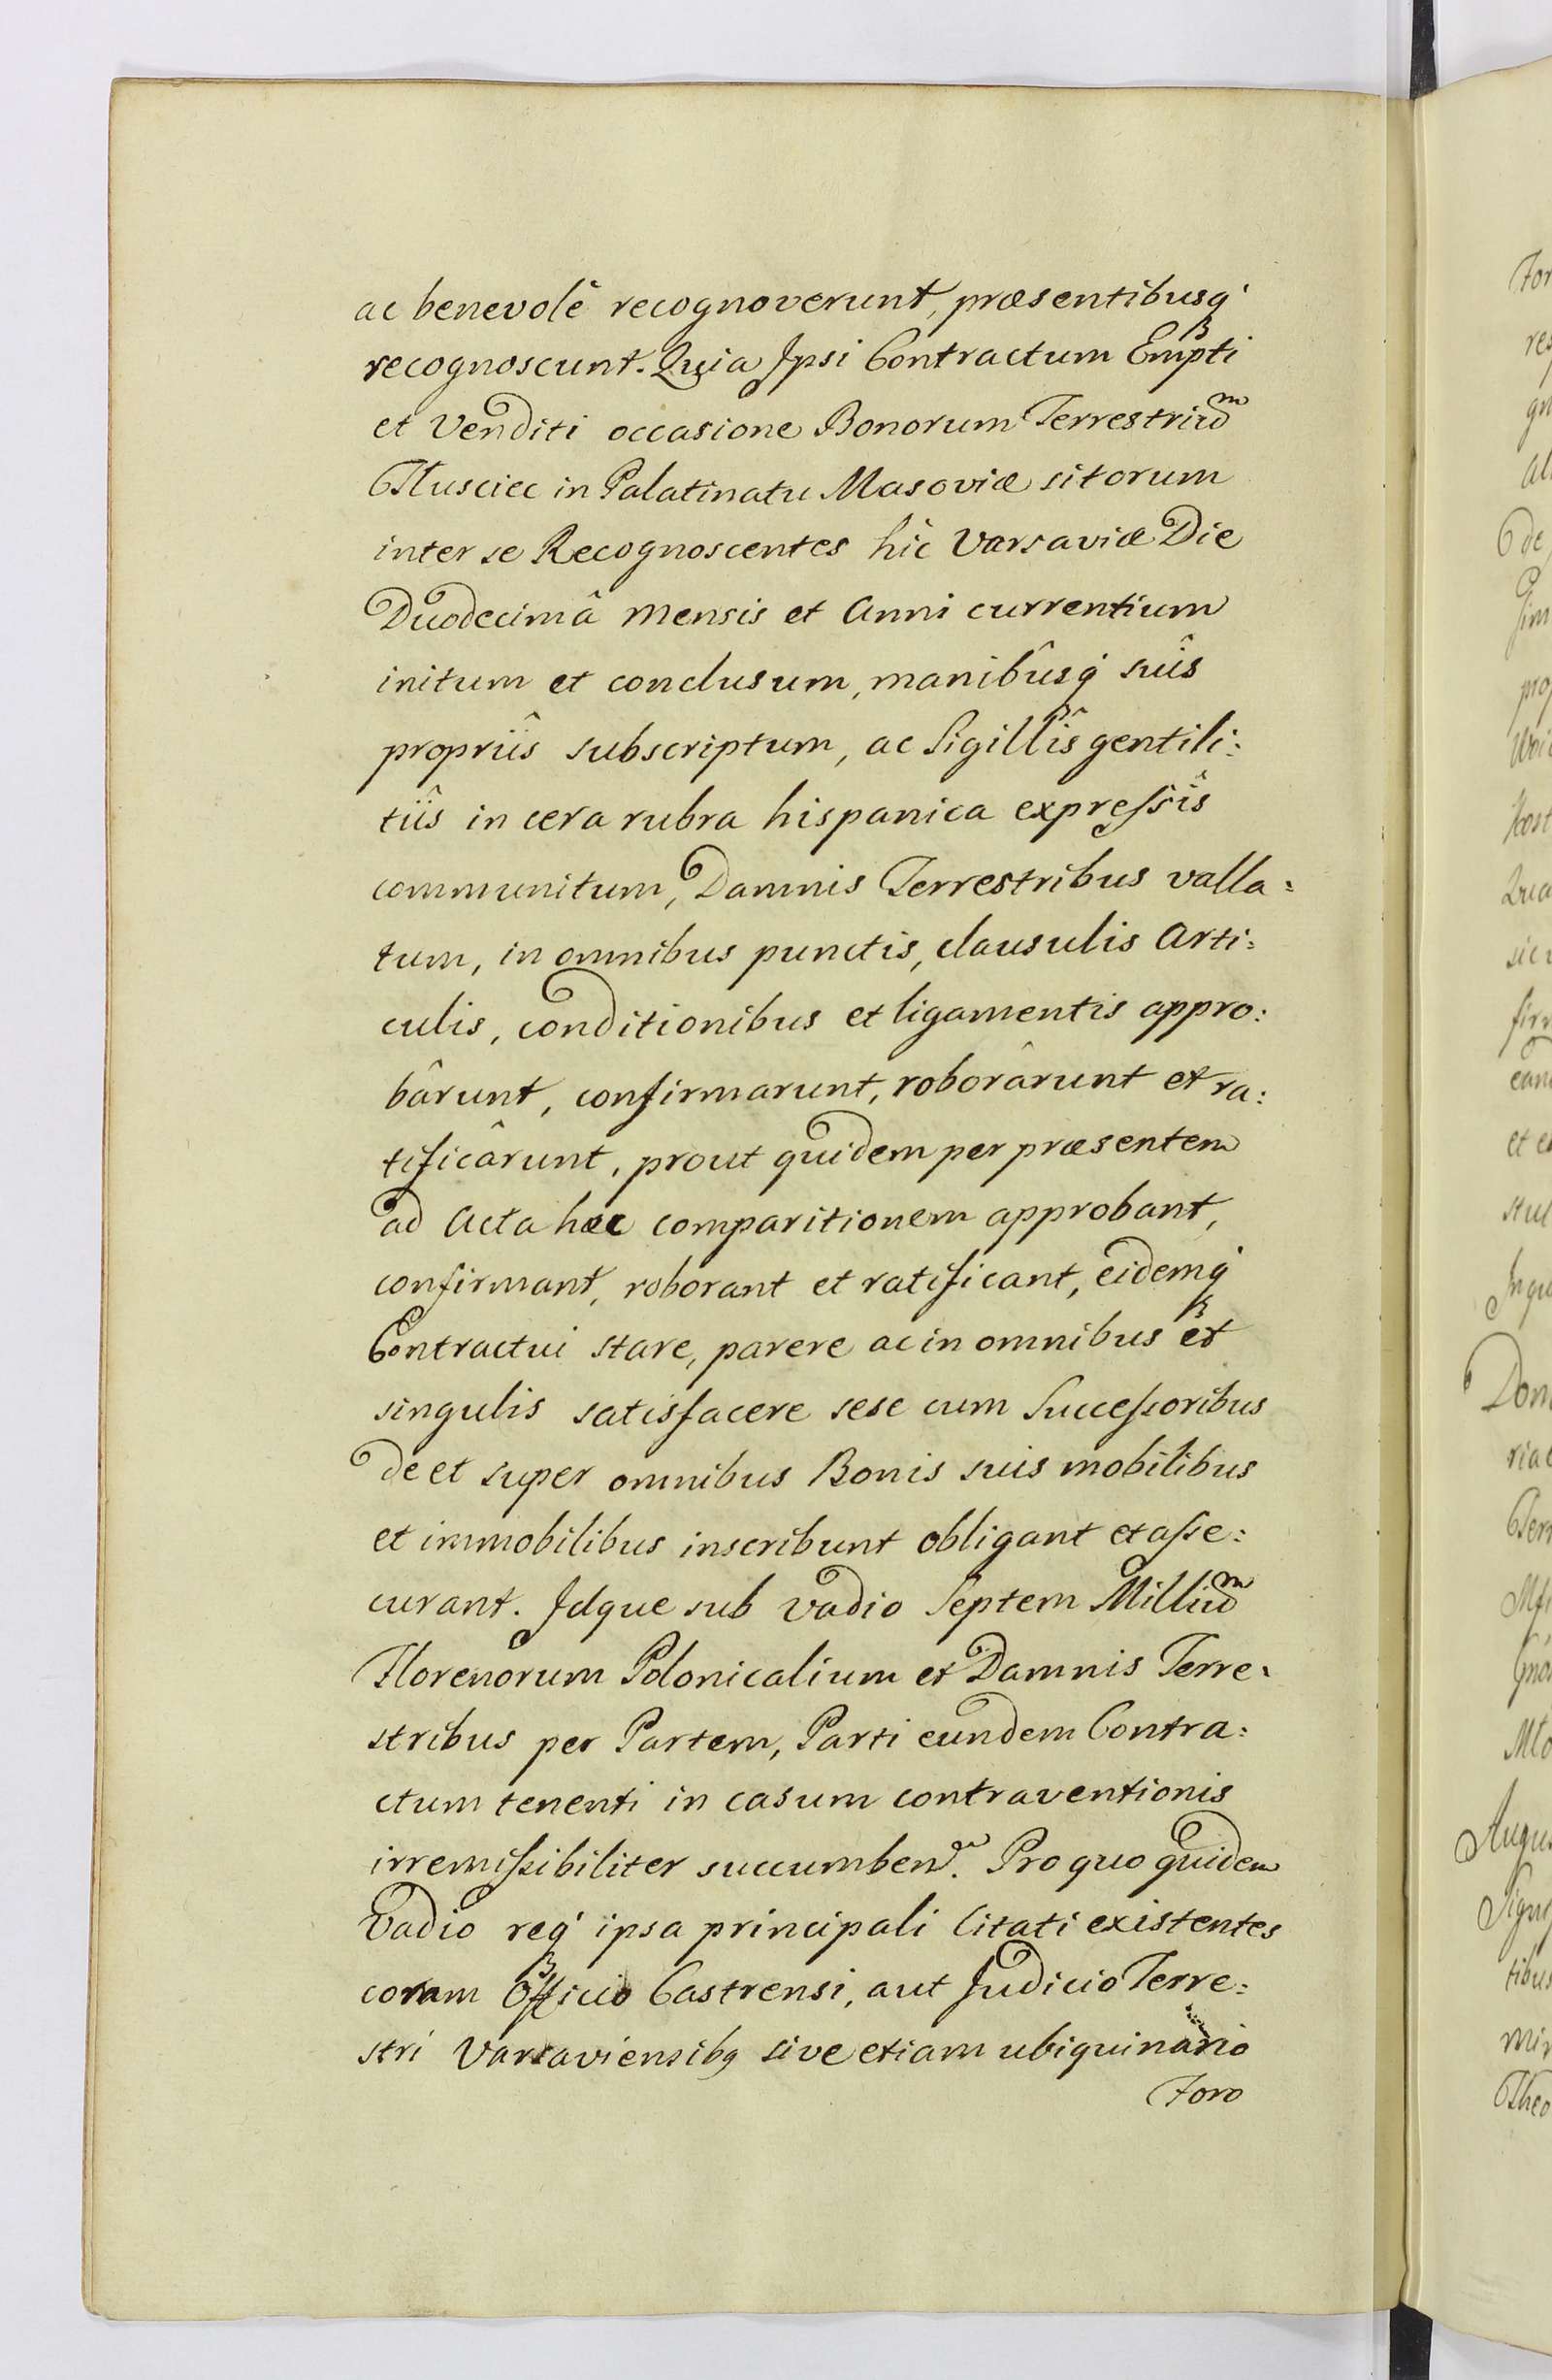 ac benevolè recognoverunt, præsentibusq́
recognoscunt. Quia Ipsi Contractum Empti
et Venditi occasione Bonorum Terrestriuᵐ
Tłusciec in Palatinatu Masoviæ sitorum
inter se Recognoscentes hìc Varsaviæ Die
Duodecimâ Mensis et Anni currentium
initum et conclusum, manibûsq́ suîs
propriîs subscriptum, ac Sigillîs gentili:
tiîs in cera rubra hispanica expreſsîs
communitum, Damnis Terrestribus valla:
tum, in omnibus punctis, clausulis Arti:
culis, conditionibus et ligamentis appro:
bârunt, confirmarunt, roborârunt et ra:
tificârunt, prout quidem per præsentem
ad Acta hæc comparitionem approbant,
confirmant, roborant et ratificant, eidemq́
Contractui stare, parere ac in omnibus et
singulis satisfacere sese cum Succeſsoribus
de et super omnibus Bonis suis mobilibus
et immobilibus inscribunt obligant et aſse:
curant. Idque sub vadio Septem Milliuᵐ
Florenorum Polonicalium et Damnis Terre:
stribus per Partem, Parti eundem Contra:
ctum tenenti in casum contraventionis
irremiſsibiliter succumbenᵈ. Pro quo quidem
Vadio req́ ipsa principali Citati existentes
coram Officio Castrensi, aut Judicio Terre:
stri Varsaviensibꝫ sive etiam ubiquinario
Foro
For
res
gn
al
de
pro
Kost
Qua
sic
et e
Inqu
Don
Augus
tibus
Theo